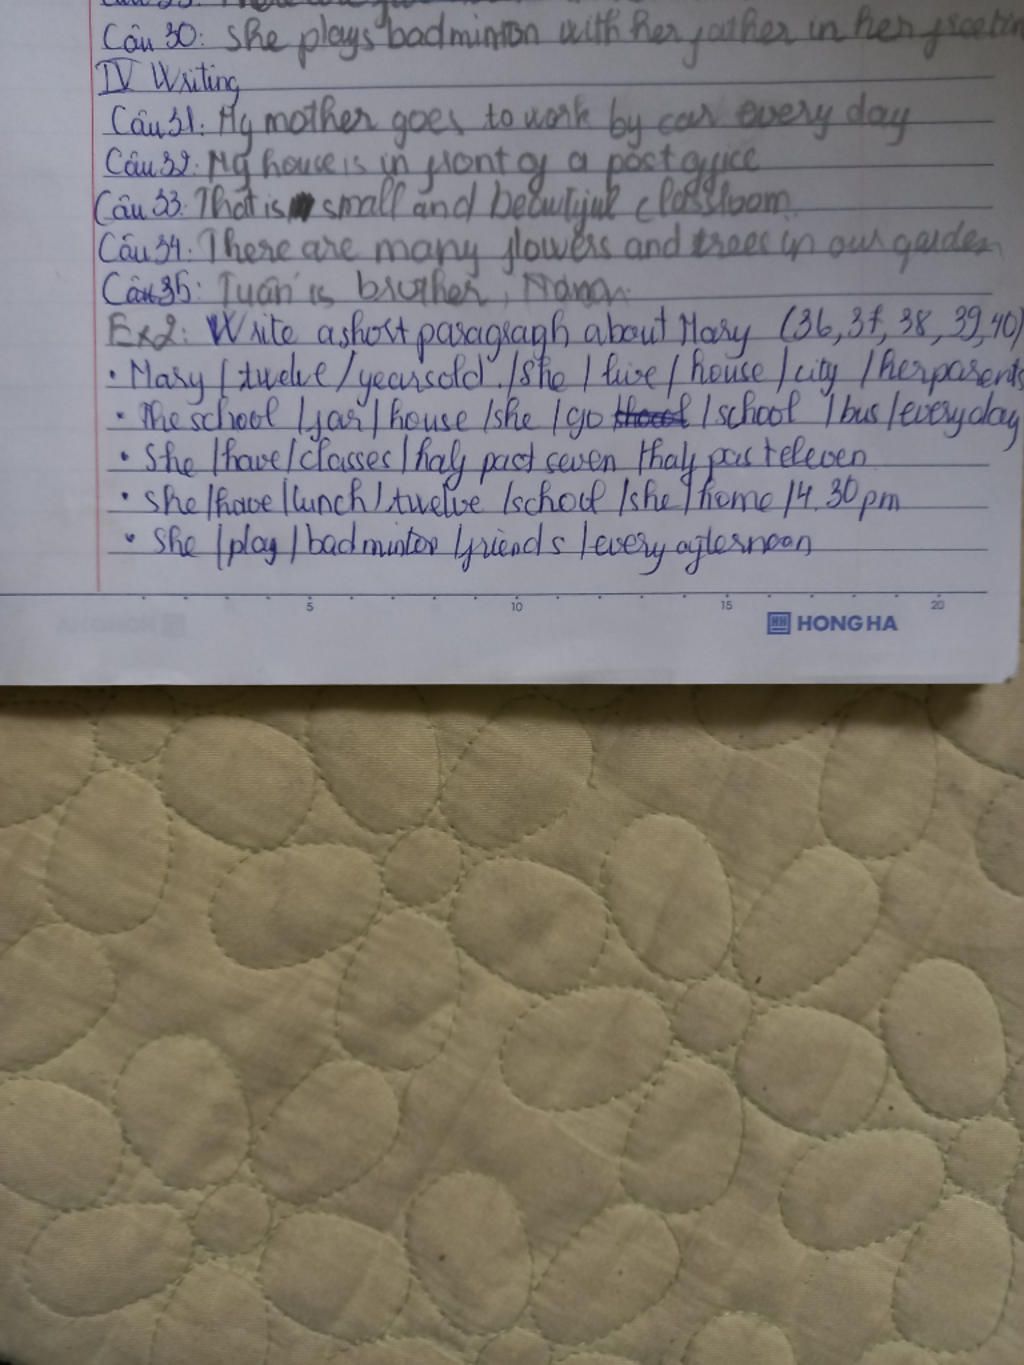 Câu 30: She plays badminton with her father in her freetim
IV Writing
Câu 31: My mother goes to work by car every day
Câu 32: My house is in front of a post office
Câu 33: That is small and beautiful classroom
Câu 34: There are many flowers and trees in our garden
Câu 35: Tuấn is brother, Nam
Ex2: Write a short paragraph about Mary (36, 37, 38, 39, 40)
• Mary / twelve / years old. / She / live / house / city / her parents
• The school / far / house / she / go / school / bus / every day
• She / have / classes / half past seven / half past eleven
• She / have / lunch / twelve / school / she / home / 4.30 pm
• She / play / badminton / friends / every afternoon
5 10 15 20
HONG HA